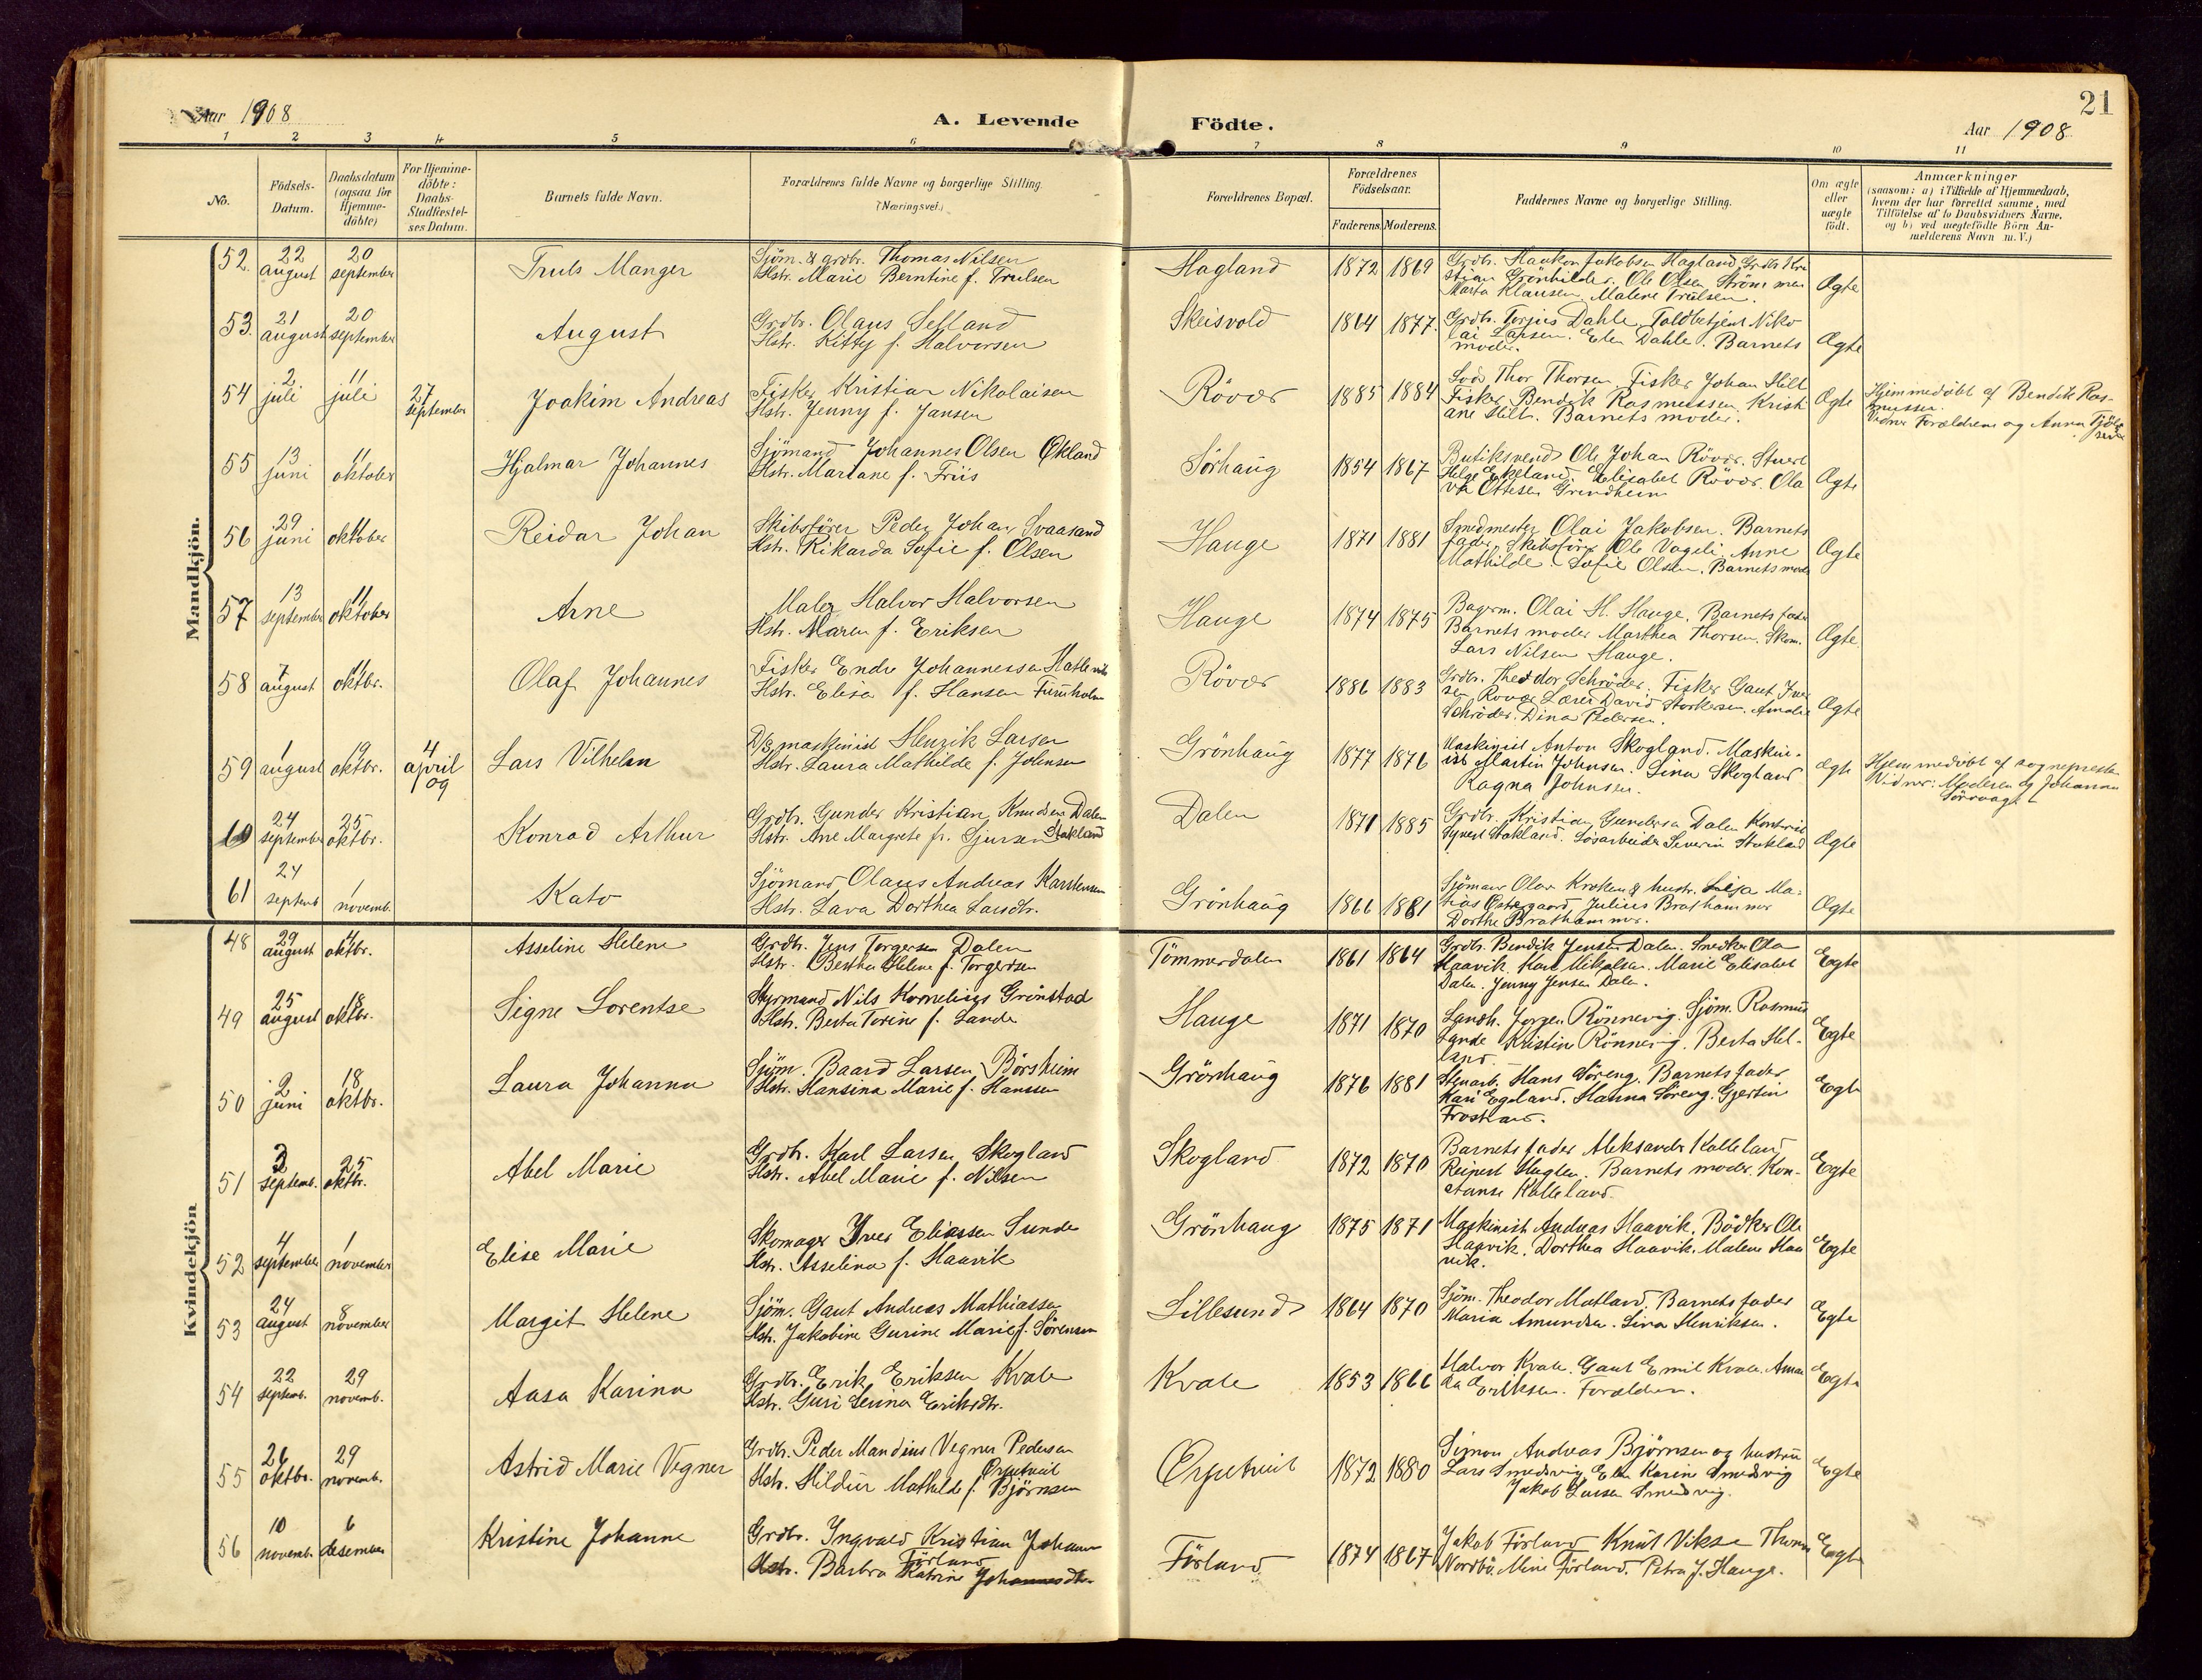 Aar 1908
A. Levende
Födte.
Aar 1908
21
1 2 3 4 5 6 7 8 9 10 11
No.
Födsels-Datum.
Daabsdatum (ogsaa for Hjemme-döbte)
For Hjemme-döbte: Daabs-Stadfæstel-ses Datum.
Barnets fulde Navn.
Forældrenes fulde Navne og borgerlige Stilling. (Næringsvei.)
Forældrenes Bopæl.
Forældrenes Födselsaar.
Faderens. Moderens.
Faddernes Navne og borgerlige Stilling.
Om ægte eller uægte födt.
Anmærkninger
(saasom: a) i Tilfælde af Hjemmedaab,
hvem der har forrettet samme, med
Tilföielse af to Daabsvidners Navne,
og b) ved uegtefödte Börn An-
melderens Navn m. V.)
Mandkjön.
52. 22 august 20 september Truls Manger
Sjöm. & grdbr. Thomas Nilsen
Hstr. Marie Berntine f. Trulsen
Hagland 1872 1869
Grdbr. Haakon Jakobsen Hagland Grdbr. Kri
stian Grönhilder. Ole Olsen Ström
Marta Klausen. Malene Trulsen.
Ægte
53. 21 august 20 september August
Grdbr. Olaus Selland
Hstr. Kitty f. Halvorsen
Skeisvold 1864 1877.
Grdb. Torjus Dahle, Toldbetjent Niko
lai Larsen. Elen Dahle. Barnets
moder.
Ægte
54 2 juli 11 juli 27 september Joakim Andreas
Fisker Kristian Nikolaisen
Hstr. Jenny f. Jansen
Rövær 1885 1884
Thor Thorsen. Fisker Johan Hilt
Fisker Bendik Rasmussen. Kristi
ane Hilt. Barnets moder.
Ægte
Hjemmedöbt af Bendik Ras-
mussen.
Vidner Forældrene og Anna
55 13 juni 11 oktober Hjalmar Johannes
Sjömand Johannes Olsen Økland
Hstr. Mariane f. Friis
Sörhaug 1854 1867
Butiksvend Ole Johan Rövær. Stuert
Helge Ekeland. Elisabet Rövær. Ola
va Ottesen Grindheim
Ægte
56 29 juni 11 oktober Reidar Johan
Skibsförer Peder Johan Svaasand
Hstr. Rikarda Sofie f. Olsen
Hauge 1871 1881
Smedmester Olai Jakobsen. Barnets
fader. Skibsförer Ole Vageli. Anne
Mathilde. Sofie Olsen. Barnets moder
Ægte
57 13 september 11 oktober Arne
Maler Halvor Halvorsen
Hstr. Maren f. Eriksen
Hauge 1874 1875
Bagerm. Olai H. Hauge. Barnets fader
Barnets moder Marthea Thorsen. Skom.
Lars Nilsen Hauge.
Ægte
58 7 august 11 oktbr. Olaf Johannes
Fisker Endre Johannessen
Hstr. Elisa f. Hansen
Rövær 1886 1883
Grdbr. Theodor Schröder. Fisker Gaut Iver
sen Rövær Lærer David Storkersen. Amalie
Schröder. Dina Pedersen.
Ægte
59 1 august 19 oktbr. 4 april 09 Lars Vilhelm
D/S maskinist Henrik Larsen
Hstr. Laura Mathilde f. Johnsen
Grönhaug 1877 1876
Maskinist Anton Skogland. Maskin-
ist Martin Johnsen. Lina Skogland
Ragna Johnsen.
ægte
Hjemmedöbt af sognepresten
Vidner: Moderen og Johanna
60 24 september 25 oktbr. Konrad Arthur
Grdbr. Gunder Kristian Knudsen Dalen
Hstr. Ane Margrete f. Sjursen Stakland
Dalen 1871 1885
Grdbr. Kristian Gundersen Dalen
Stakland. Lösarbeider Severin Stakland
Ægte
61 24 septemb 1 novemb. Kato
Sjömand Olaus Andreas Karstensen
Hstr. Lava Dorthea Larsdtr.
Grönhaug 1866 1881
Sjömand Olav Kroken & hustr. Ma-
tias Östergaard, Julius Brathammer
Dorthe Brathammer.
Ægte
Kvindekjön
48 29 august 4 oktbr. Asseline Helene
Grdbr. Jens Torgersen Dalen
Hstr. Bertha Helene f. Torgersen
Tömmerdalen 1861 1864
Grdbr. Bendik Jensen Dalen. Snedker Ola
Haavik. Mikalsen. Marie Elisabet
Dalen. Jenny Jensen Dalen.
Egte
49 25 august 18 oktbr. Signe Lorentse
Styrmand Nils Kornelius Grönstad
Hstr. Berta Torine f. Sande
Hauge 1871 1870
Landh. Jorgen Rönnevig. Sjöm. Rasmus
Sande Kristine Rönnevig. Berta Hel-
land.
Egte
50 2 juni 18 oktbr. Laura Johanna
Sjöm. Baard Larsen Börsheim
Hstr. Hansina Marie f. Hanssen
Grönhaug 1876 1881
Stenarb. Hans Söreng. Barnets fader
Kari Egeland. Hanna Söreng. Gjertine
Frostad.
Egte
51 2 septemb. 25 oktbr. Abel Marie
Grdbr. Karl Larsen Skogland
Hstr. Abel Marie f. Nilsen
Skogland 1872 1870
Barnets fader Aleksander Kalleland
Reinert Hagten. Barnets moder. Kon-
stanse Kalleland.
Egte
52 4 september 1 november Elise Marie
Skomager Iver Eliassen Sunde
Hstr. Asselina f. Haavik
Grönhaug 1875 1871
Maskinist Andreas Haavik. Bödker Ole
Haavik. Dorthea Haavik. Malene Haa
vik.
Egte
53 24 august 8 november Margit Helene
Sjöm. Gaut Andreas Mathiassen
Hstr. Jakobine Gurine Marie f. Sörensen
Lillesund 1864 1870
Sjöm. Theodor Matland. Barnets fader
Maria Amundsen. Lina Henriksen.
Egte
54 22 septemb. 29 novemb. Aasa Karina
Grdbr. Erik Eriksen Kvale
Hstr. Guri Serina Eriksdtr.
Kvale 1853 1866
Halvor Kvale. Gaut Emil Kvale. Aman
da Eriksen. Forældren.
Egte
55 26 oktbr. 29 novemb. Astrid Marie Vegner
Grdbr. Peder Mandius Vegner Pedersen
Örpetveit
Hstr. Hildur Mathilde f. Björnsen
Örpetveit 1872 1880
Simon Andreas Björnsen og hustru
Lars Smedsvig Elen Karine Smedsvig
Jakob Larsen Smedsvig.
Egte
56 10 novemb. 6 desember Kristine Johanne
Grdbr. Ingvald Kristian Johann
Förland
Hstr. Barbra Katrine Johannesdtr.
Förland 1874 1867
Jakob Förland Knut Vikse Thomas
Nordbö. Mine Förland. Petra J. Hauge.
Egte